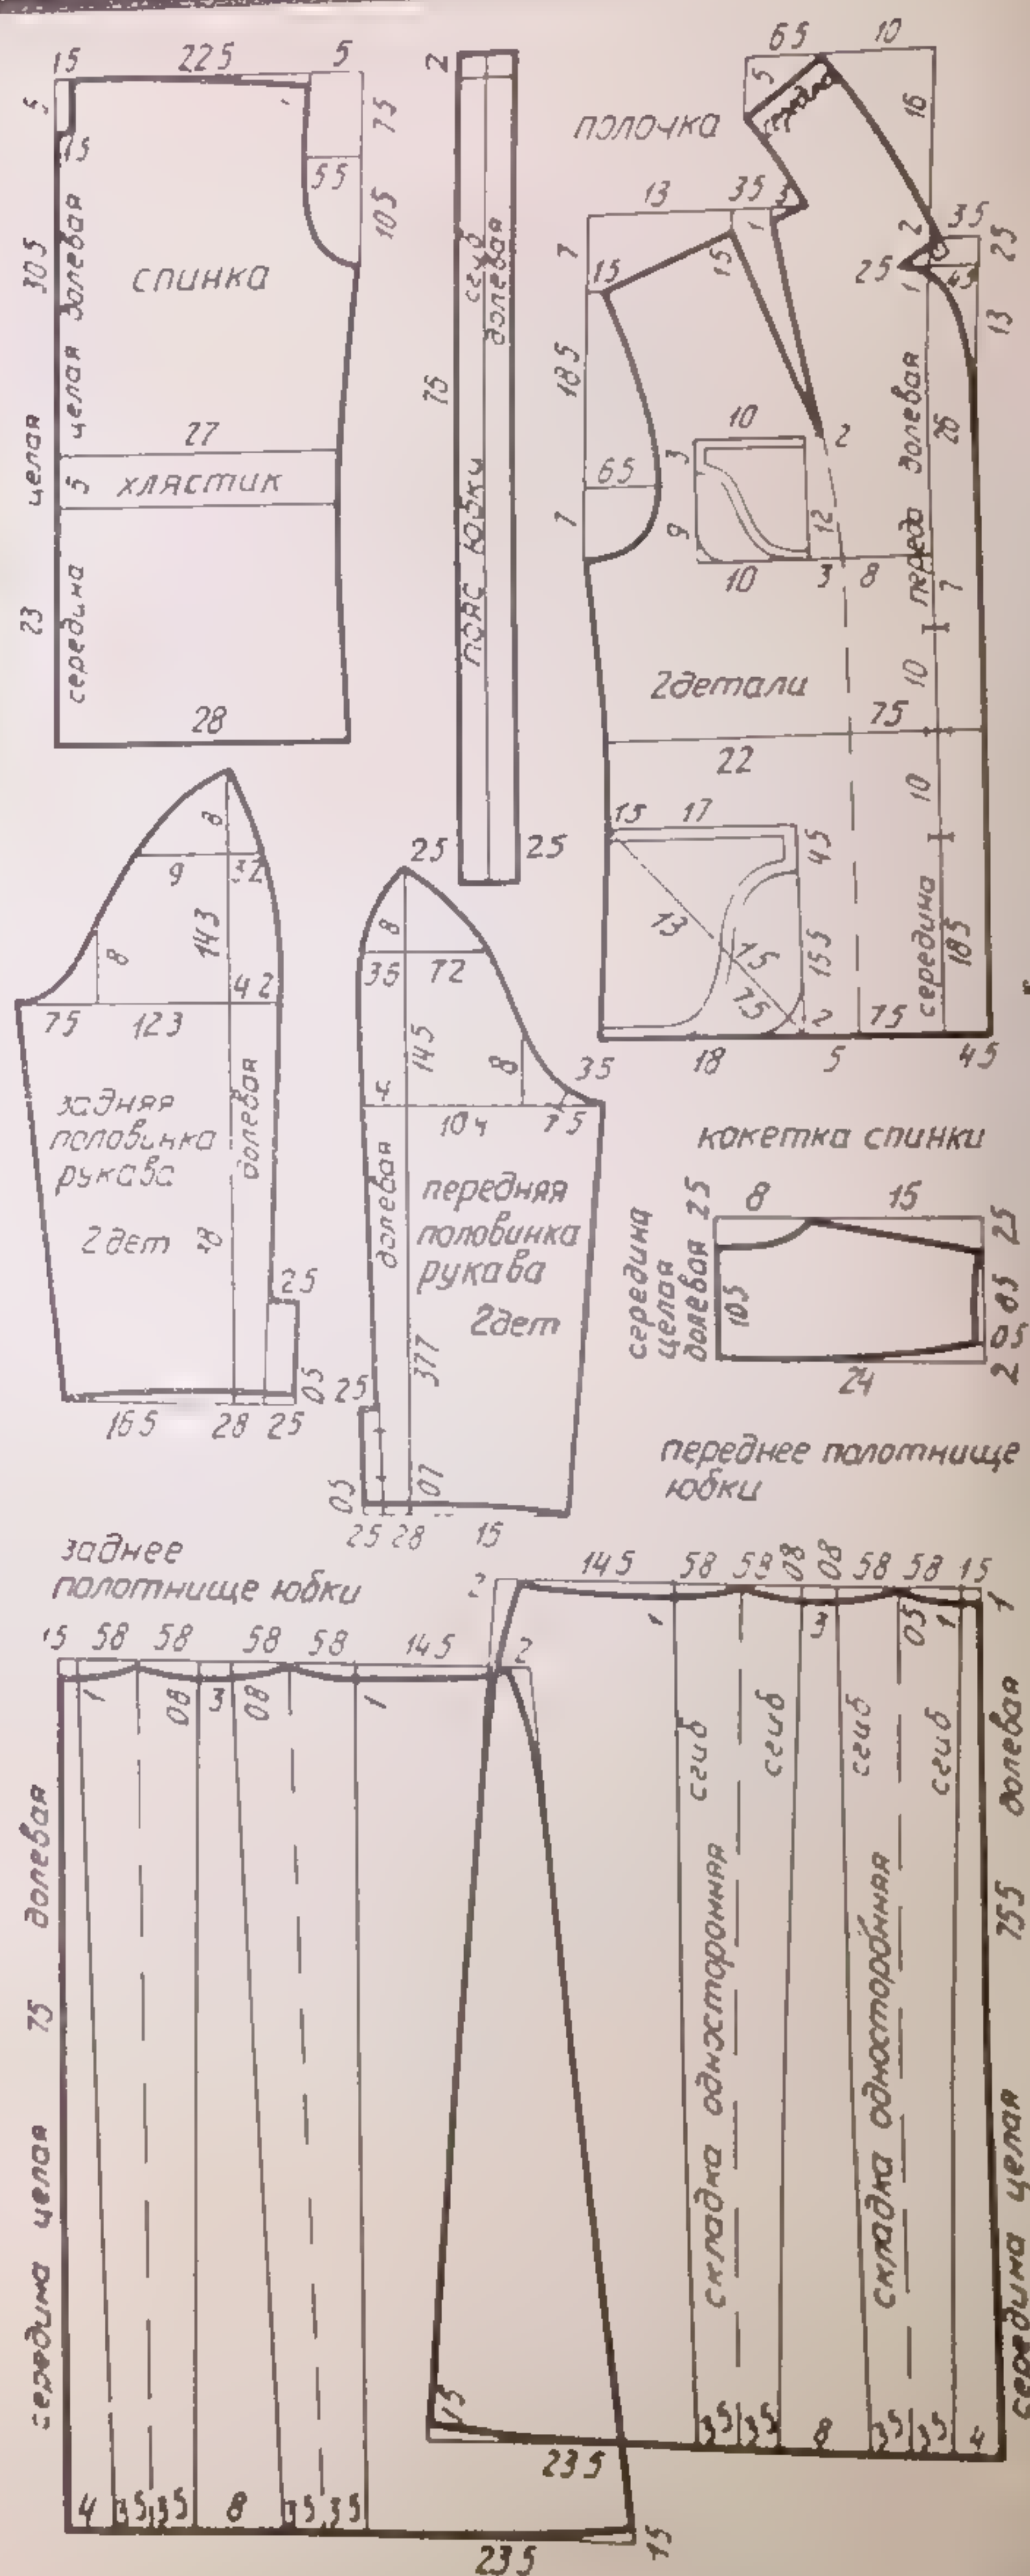 15 22 5 5
5
15
7 5
5 5
10 5
30 5
целая
целая долевая
спинка
27
5 хлястик
23
середина
28
2
сгиб
долевая
75
пояс юбки
2 5 2 5
полочка
6 5 10
5
16
13 3 5 3
1
7
15
15
2
3 5
2 5
2 5
1
4 5
13
18 5
10
2
3
6 5
7
9
12
10 3 8
26
7
переда долевая
2 детали
10
7 5
22
10
15 17
4 5
13
7 5
7 5
15 5
2
7 5
середина
18 5
18 5 4 5
8
9 3 2
14 3
8
4 2
7 5 12 3
задняя
половинка
рукава
2 дет
долевая
2 5
0 5
16 5 28 2 5
8
3 5 7 2
14 5
8
3 5
4
10 4 7 5
долевая
передняя
половинка
рукава
2 дет
37 7
2 5
0 5
0 7
2 5 28 15
кокетка спинки
2 5
8 15
2 5
середина
целая
долевая
10 5
8 5
0 5
2
24
переднее полотнище
юбки
заднее
полотнище юбки
15 5 8 5 8 5 8 5 8 14 5 2
1 0 8 3 0 8 1
долевая
75
середина целая
4 3 5 3 5 8 3 5 3 5
23 5
15
2
14 5 5 8 5 8 0 8 0 8 5 8 5 8 15
1 3 0 5 1
1
сгиб
сгиб
сгиб
сгиб
складка односторонняя
складка односторонняя
долевая
75 5
середина целая
15
23 5
3 5 3 5 8 3 5 3 5 4